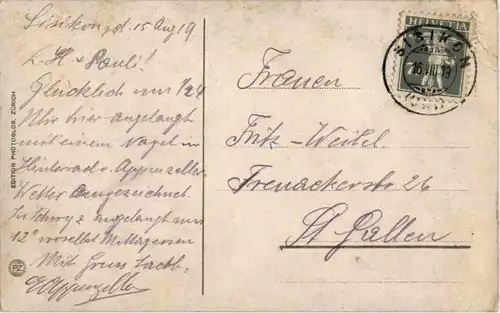 Sisikon, d. 15 Aug 19
L. H. + Pauli!
Glücklich um 1/24
Uhr hier angelangt
mit einem Nagel im
Hinterrad v. Appenzeller
Wetter Ausgezeichnet.
In Schwyz angelangt um
12° woselbst Mittagessen
Mit Gruss
E. Appenzeller
HELVETIA
SISIKON
16.VIII.19
Frauen
Fritz-Weikel.
Frenackerstr. 26
St. Gallen
EDITION PHOTOGLOB ZÜRICH
PZ